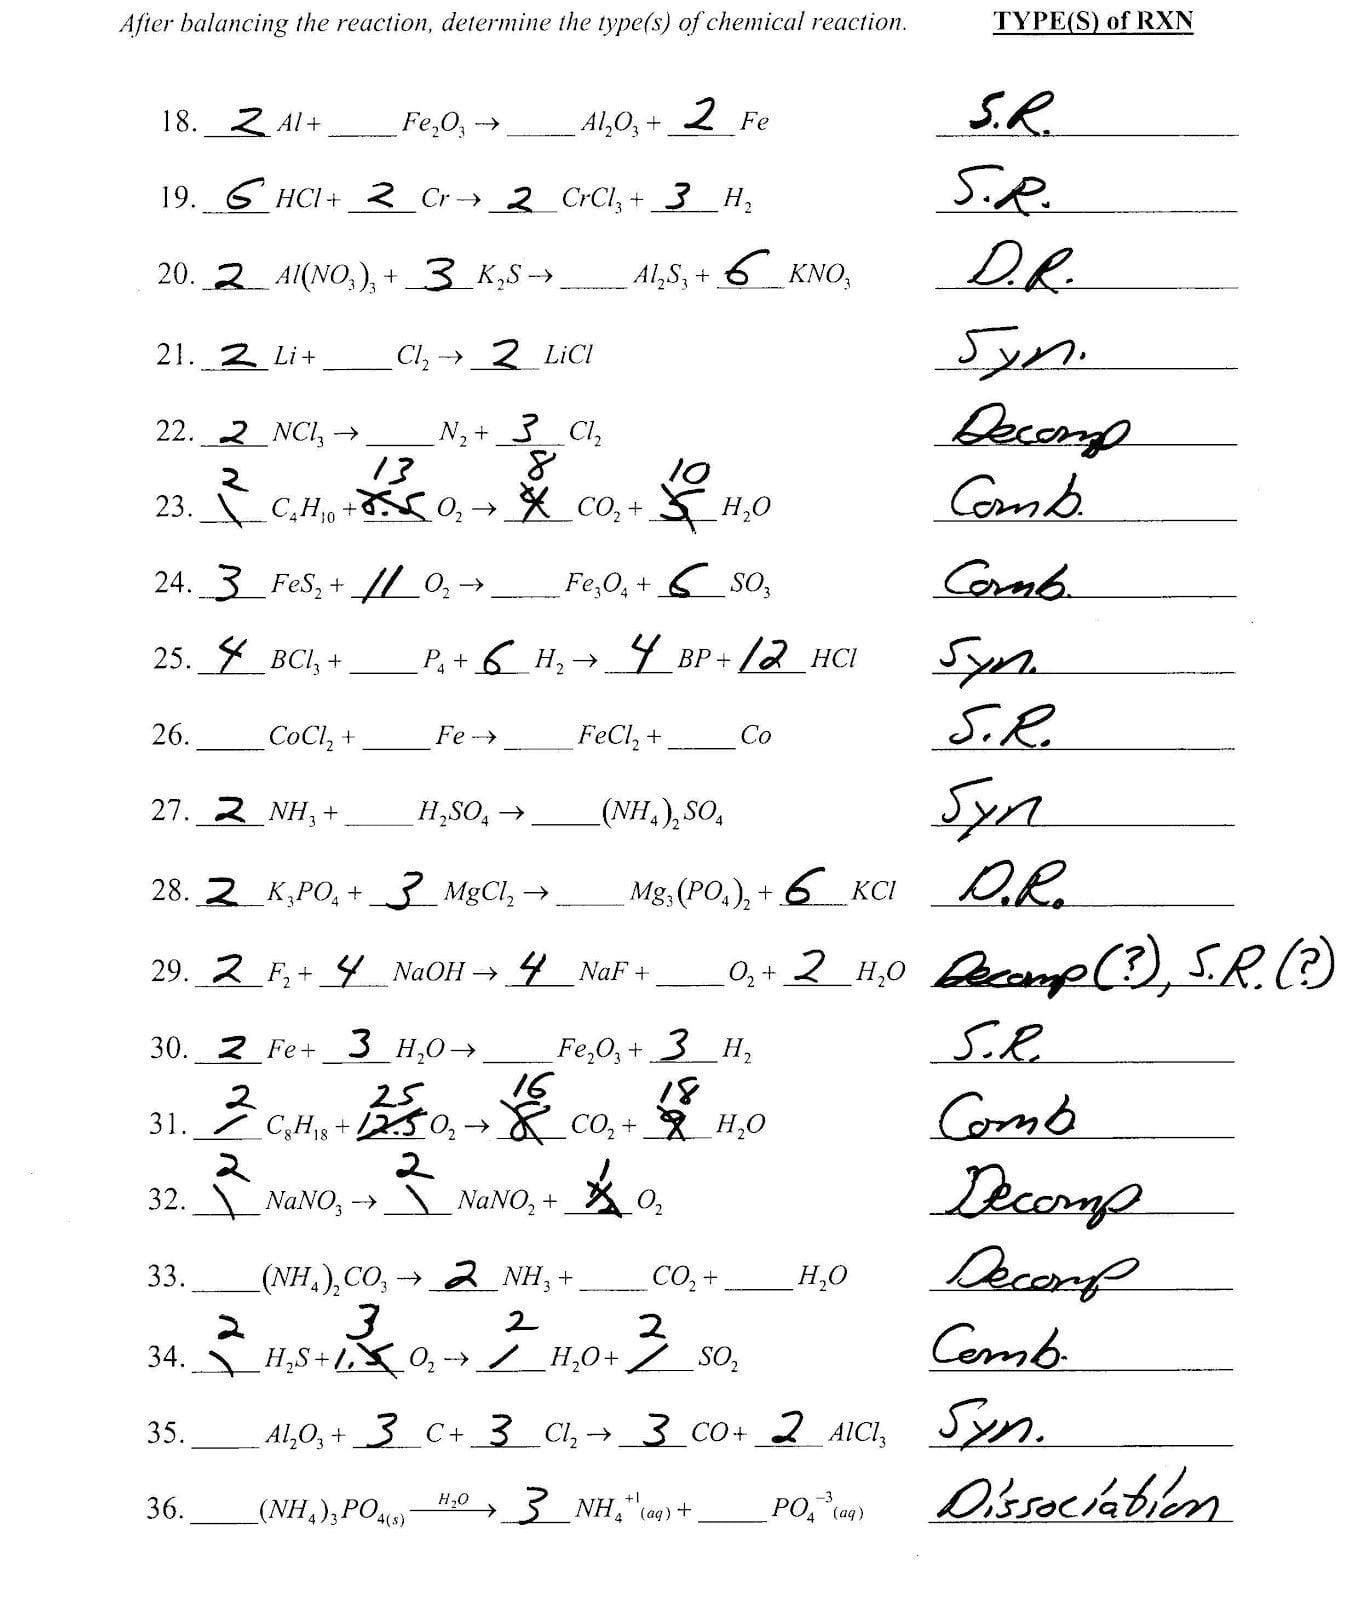 After balancing the reaction, determine the type(s) of chemical reaction. TYPE(S) of RXN
18. 2 Al + ____ Fe₂O₃ → ____ Al₂O₃ + 2 Fe S.R.
19. 6 HCl + 2 Cr → 2 CrCl₃ + 3 H₂ S.R.
20. 2 Al(NO₃)₃ + 3 K₂S → ____ Al₂S₃ + 6 KNO₃ D.R.
21. 2 Li + ____ Cl₂ → 2 LiCl Syn.
22. 2 NCl₃ → ____ N₂ + 3 Cl₂ Decomp
2 13 8 10
23. 1 C₄H₁₀ + 6.5 O₂ → 4 CO₂ + 5 H₂O Comb.
24. 3 FeS₂ + 11 O₂ → ____ Fe₃O₄ + 6 SO₃ Comb.
25. 4 BCl₃ + ____ P₄ + 6 H₂ → 4 BP + 12 HCl Syn.
26. ____ CoCl₂ + ____ Fe → ____ FeCl₂ + ____ Co S.R.
27. 2 NH₃ + ____ H₂SO₄ → ____ (NH₄)₂SO₄ Syn
28. 2 K₃PO₄ + 3 MgCl₂ → ____ Mg₃(PO₄)₂ + 6 KCl D.R.
29. 2 F₂ + 4 NaOH → 4 NaF + ____ O₂ + 2 H₂O Decomp(?), S.R.(?)
30. 2 Fe + 3 H₂O → ____ Fe₂O₃ + 3 H₂ S.R.
2 25 16 18
31. 1 C₈H₁₈ + 12.5 O₂ → 8 CO₂ + 9 H₂O Comb
2 2 1
32. 1 NaNO₃ → 1 NaNO₂ + ½ O₂ Decomp
33. ____ (NH₄)₂CO₃ → 2 NH₃ + ____ CO₂ + ____ H₂O Decomp
2 3 2 2
34. 1 H₂S + 1.5 O₂ → 1 H₂O + 1 SO₂ Comb.
35. ____ Al₂O₃ + 3 C + 3 Cl₂ → 3 CO + 2 AlCl₃ Syn.
36. ____ (NH₄)₃PO₄₍s₎ —H₂O→ 3 NH₄⁺¹(aq) + ____ PO₄⁻³(aq) Dissociation